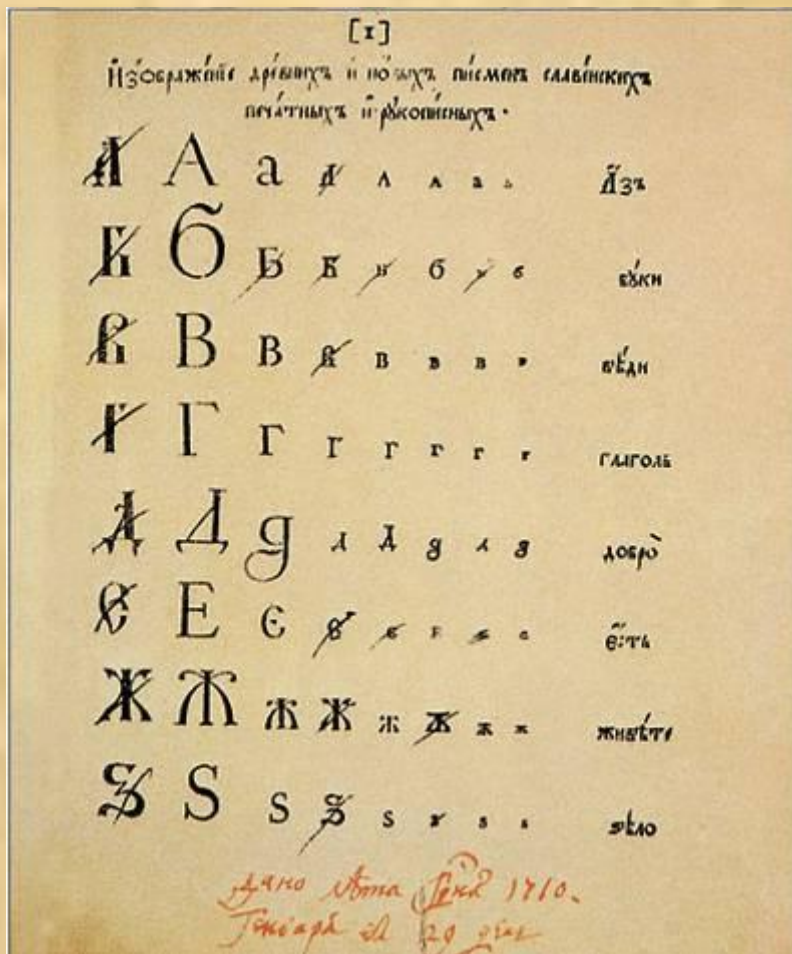 [1]
И҆зѡбраже́нїе дре́внихъ и҆ но́выхъ пи́сменъ славе́нскихъ
печа́тныхъ и҆ рꙋкопи́сныхъ.
А А а А а а а а А҆́зъ
Б Б Б Б Б б б б бꙋ́ки
В В в В в в в в вѣ́ди
Г Г г г г г г г глаго́ль
Д Д д д д д д д добро̀
Є Е є е е е е е є҆́сть
Ж Ж ж ж ж ж ж ж живѣ́те
Ѕ Ѕ ѕ ѕ ѕ ѕ ѕ ѕ ѕѣло̀
Дано лѣта 1710.
Генваря 29